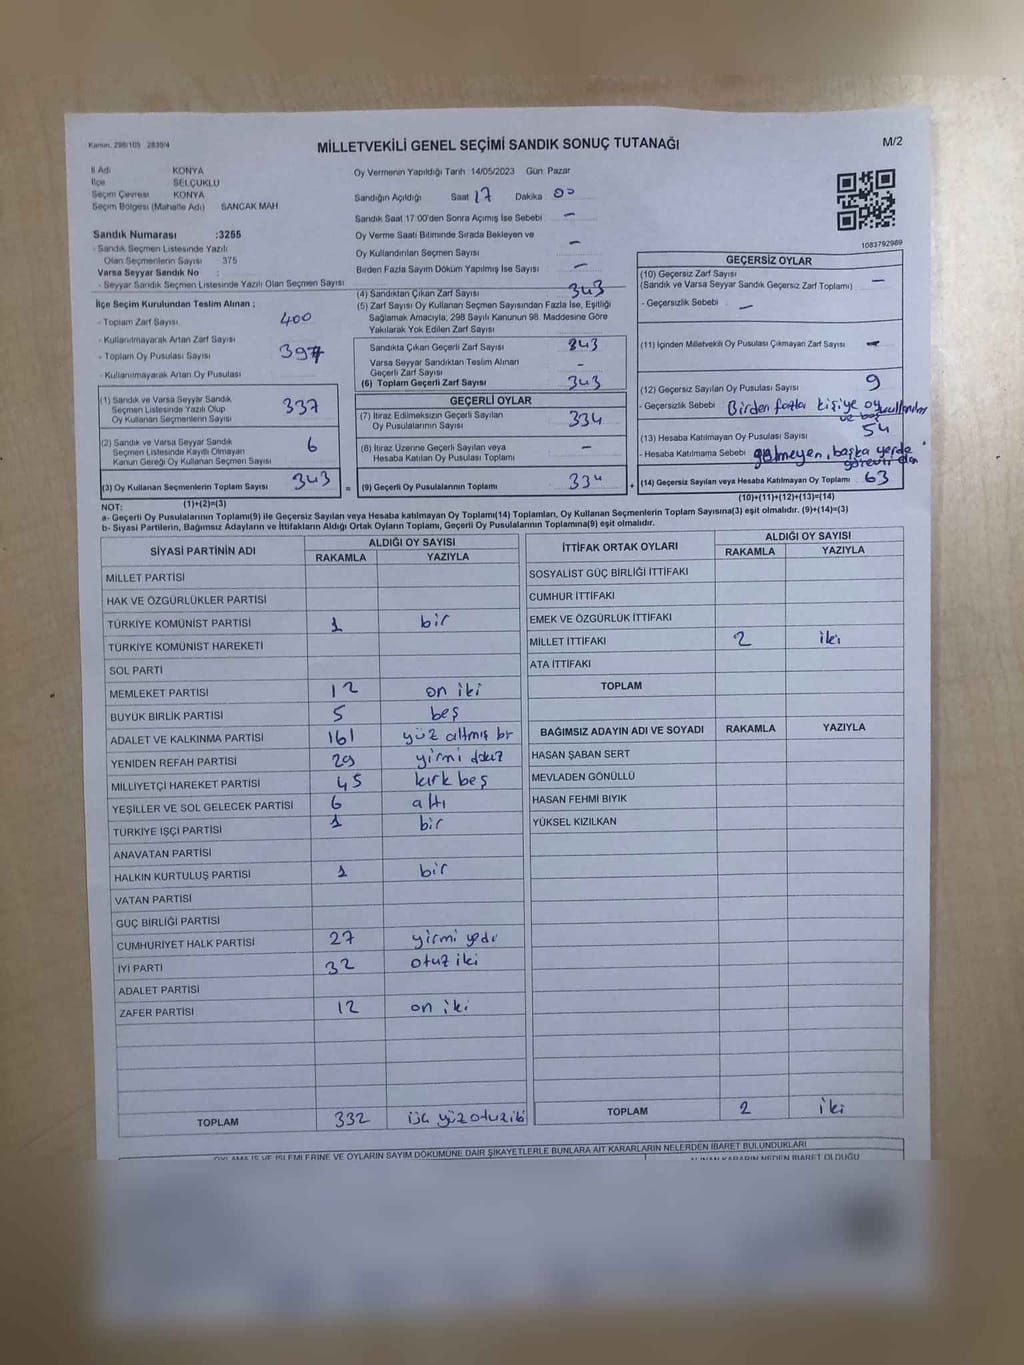 Kanun: 298/105 2839/4
MİLLETVEKİLİ GENEL SEÇİMİ SANDIK SONUÇ TUTANAĞI
M/2
İl Adı KONYA
İlçe SELÇUKLU
Seçim Çevresi KONYA
Seçim Bölgesi (Mahalle Adı) SANCAK MAH
Sandık Numarası :3255
- Sandık Seçmen Listesinde Yazılı
Olan Seçmenlerin Sayısı 375
Varsa Seyyar Sandık No :
- Seyyar Sandık Seçmen Listesinde Yazılı Olan Seçmen Sayısı
İlçe Seçim Kurulundan Teslim Alınan ;
- Toplam Zarf Sayısı 400
- Kullanılmayarak Artan Zarf Sayısı
- Toplam Oy Pusulası Sayısı 397
- Kullanılmayarak Artan Oy Pusulası
(1) Sandık ve Varsa Seyyar Sandık
Seçmen Listesinde Yazılı Olup
Oy Kullanan Seçmenlerin Sayısı 337
(2) Sandık ve Varsa Seyyar Sandık
Seçmen Listesinde Kayıtlı Olmayan
Kanun Gereği Oy Kullanan Seçmen Sayısı 6
(3) Oy Kullanan Seçmenlerin Toplam Sayısı 343
(1)+(2)=(3)
Oy Vermenin Yapıldığı Tarih 14/05/2023 Gün: Pazar
Sandığın Açıldığı Saat 17 Dakika 00
Sandık Saat 17:00'den Sonra Açımış İse Sebebi —
Oy Verme Saati Bitiminde Sırada Bekleyen ve
Oy Kullandırılan Seçmen Sayısı —
Birden Fazla Sayım Döküm Yapılmış İse Sayısı —
(4) Sandıktan Çıkan Zarf Sayısı 343
(5) Zarf Sayısı Oy Kullanan Seçmen Sayısından Fazla İse, Eşitliği
Sağlamak Amacıyla, 298 Sayılı Kanunun 98. Maddesine Göre
Yakılarak Yok Edilen Zarf Sayısı
Sandıkta Çıkan Geçerli Zarf Sayısı 343
Varsa Seyyar Sandıktan Teslim Alınan
Geçerli Zarf Sayısı -
(6) Toplam Geçerli Zarf Sayısı 343
GEÇERLİ OYLAR
(7) İtiraz Edilmeksizin Geçerli Sayılan
Oy Pusulalarının Sayısı 334
(8) İtiraz Üzerine Geçerli Sayılan veya
Hesaba Katılan Oy Pusulası Toplamı —
= (9) Geçerli Oy Pusulalarının Toplamı 334 +
1083792989
GEÇERSİZ OYLAR
(10) Geçersiz Zarf Sayısı
(Sandık ve Varsa Seyyar Sandık Geçersiz Zarf Toplamı) —
- Geçersizlik Sebebi —
(11) İçinden Milletvekili Oy Pusulası Çıkmayan Zarf Sayısı —
(12) Geçersiz Sayılan Oy Pusulası Sayısı 9
- Geçersizlik Sebebi Birden fazla kişiye oy
ve boş
(13) Hesaba Katılmayan Oy Pusulası Sayısı 54
- Hesaba Katılmama Sebebi gelmeyen, başka yerde
görevli olan
(14) Geçersiz Sayılan veya Hesaba Katılmayan Oy Toplamı 63
(10)+(11)+(12)+(13)=(14)
NOT:
a- Geçerli Oy Pusulalarının Toplamı(9) ile Geçersiz Sayılan veya Hesaba katılmayan Oy Toplamı(14) Toplamları, Oy Kullanan Seçmenlerin Toplam Sayısına(3) eşit olmalıdır. (9)+(14)=(3)
b- Siyasi Partilerin, Bağımsız Adayların ve İttifakların Aldığı Ortak Oyların Toplamı, Geçerli Oy Pusulalarının Toplamına(9) eşit olmalıdır.
SİYASİ PARTİNİN ADI ALDIĞI OY SAYISI
RAKAMLA YAZIYLA
MİLLET PARTİSİ
HAK VE ÖZGÜRLÜKLER PARTİSİ
TÜRKİYE KOMÜNİST PARTİSİ 1 bir
TÜRKİYE KOMÜNİST HAREKETİ
SOL PARTİ
MEMLEKET PARTİSİ 12 on iki
BÜYÜK BİRLİK PARTİSİ 5 beş
ADALET VE KALKINMA PARTİSİ 161 yüz altmış br
YENİDEN REFAH PARTİSİ 29 yirmi dokuz
MİLLİYETÇİ HAREKET PARTİSİ 45 kırk beş
YEŞİLLER VE SOL GELECEK PARTİSİ 6 altı
TÜRKİYE İŞÇİ PARTİSİ 1 bir
ANAVATAN PARTİSİ
HALKIN KURTULUŞ PARTİSİ 1 bir
VATAN PARTİSİ
GÜÇ BİRLİĞİ PARTİSİ
CUMHURİYET HALK PARTİSİ 27 yirmi yedi
İYİ PARTİ 32 otuz iki
ADALET PARTİSİ
ZAFER PARTİSİ 12 on iki
TOPLAM 332 üç yüz otuz iki
İTTİFAK ORTAK OYLARI ALDIĞI OY SAYISI
RAKAMLA YAZIYLA
SOSYALİST GÜÇ BİRLİĞİ İTTİFAKI
CUMHUR İTTİFAKI
EMEK VE ÖZGÜRLÜK İTTİFAKI
MİLLET İTTİFAKI 2 iki
ATA İTTİFAKI
TOPLAM
BAĞIMSIZ ADAYIN ADI VE SOYADI RAKAMLA YAZIYLA
HASAN ŞABAN SERT
MEVLADEN GÖNÜLLÜ
HASAN FEHMİ BIYIK
YÜKSEL KIZILKAN
TOPLAM 2 iki
OYLAMA İŞ VE İŞLEMLERİNE VE OYLARIN SAYIM DÖKÜMÜNE DAİR ŞİKAYETLERLE BUNLARA AİT KARARLARIN NELERDEN İBARET BULUNDUKLARI
ALINAN KARARIN NEDEN İBARET OLDUĞU